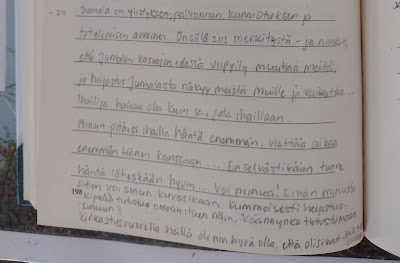 -24 Jumala on ylistyksen, palvonnan, kunnioituksen ja
tottelemisen arvoinen. On sillä siis merkitystä - ja niinkin,
että Jumalan kasvojen edessä viipyily muuttaa meitä,
ja heijastus Jumalasta näkyy meistä muille ja vaikuttaa...
Ihailija haluaa olla kuin se, jota ihaillaan.
Minun pitäisi ihailla häntä enemmän, viettää aikaa
enemmän Hänen kanssaan.... En selvästikään tunne
häntä läheskään hyvin... Voi minua! Eihän minusta
sitten voi sinun kuvasikaan kummoisesti heijastua.
198 Kipeää tutustua omaan itseen näin. Käännynkö tutustumaan
sinuun?
Kirkastusvuorella heillä oli niin hyvä olla, että olisivat